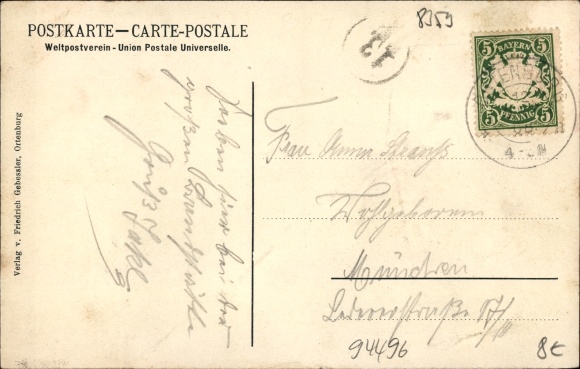 8359
POSTKARTE — CARTE-POSTALE
Weltpostverein - Union Postale Universelle.
13
5 BAYERN 5
5 PFENNIG 5
4-5N
Verlag v. Friedrich Gebessler, Ortenburg
Haben hier bei der
großen
Grüße
Frau Anna
Wohlgeboren
München
Ledererstraße 17/
94496
8€